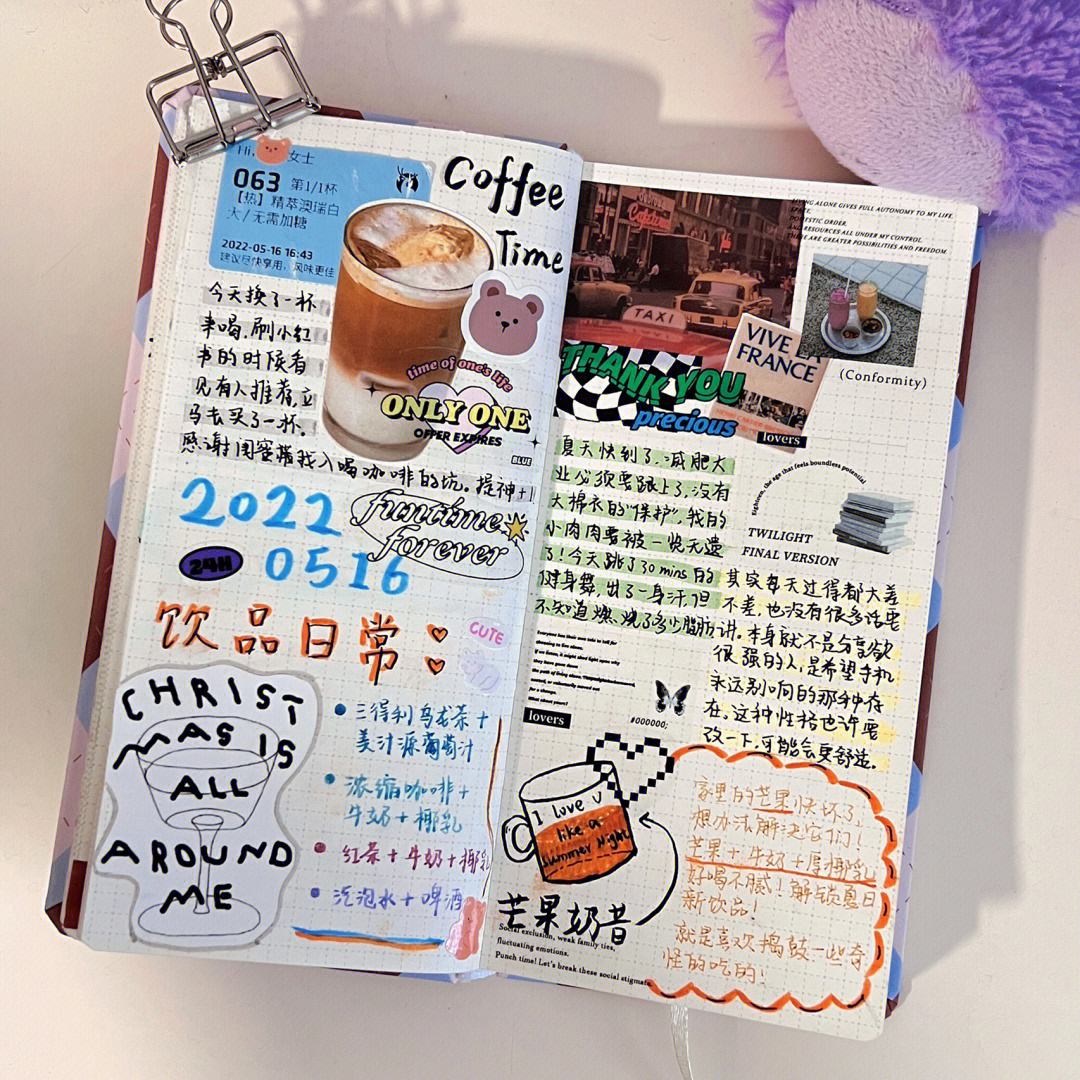 Hi,
女士
063 第1/1杯
【热】精萃澳瑞白
大/无需加糖
2022-05-16 16:43
建议尽快享用，风味更佳
Coffee
Time
今天换了一杯
来喝.刷小红
书的时候看
见有人推荐,立
马去买了一杯.
感谢闺蜜带我入喝咖啡的坑.提神+1
time of one's life
ONLY ONE
OFFER EXPIRES
BLUE
2022
0516
24H
funtime
forever
饮品日常
CUTE
CHRIST
MAS IS
ALL
AROUND
ME
三得利乌龙茶+
美汁源葡萄汁
浓缩咖啡+
牛奶+椰乳
红茶+牛奶+椰乳
气泡水+啤酒
LIVING ALONE GIVES FULL AUTONOMY TO MY LIFE.
SPACE.
DOMESTIC ORDER.
AND RESOURCES ALL UNDER MY CONTROL.
THERE ARE GREATER POSSIBILITIES AND FREEDOM.
TAXI
VIVE LA
FRANCE
THANK YOU
precious
lovers
(Conformity)
夏天快到了,减肥大
业必须要跟上了,没有
大棉衣的"保护",我的
小肉肉要被一览无遗
了!今天跳了30 mins的
健身舞,出了一身汗,但
不知道燃烧了多少脂肪
Eighteen, the age that feels boundless potential
TWILIGHT
FINAL VERSION
其实每天过得都大差
不差,也没有很多话要
讲.本身就不是分享欲
很强的人,是希望手机
永远别响的那种存
在.这种性格也许要
改一下,可能会更舒适.
Everyone has their own take to tell for
lovers
#000000;
I love U
like a
summer Night
芒果奶昔
Social exclusion, weak family ties,
fluctuating emotions.
Punch time! Let's break these social stigmate
家里的芒果快坏了
想办法解决它们!
芒果+牛奶+厚椰乳
好喝不腻!解锁夏日
新饮品!
就是喜欢捣鼓一些奇
怪的吃的!